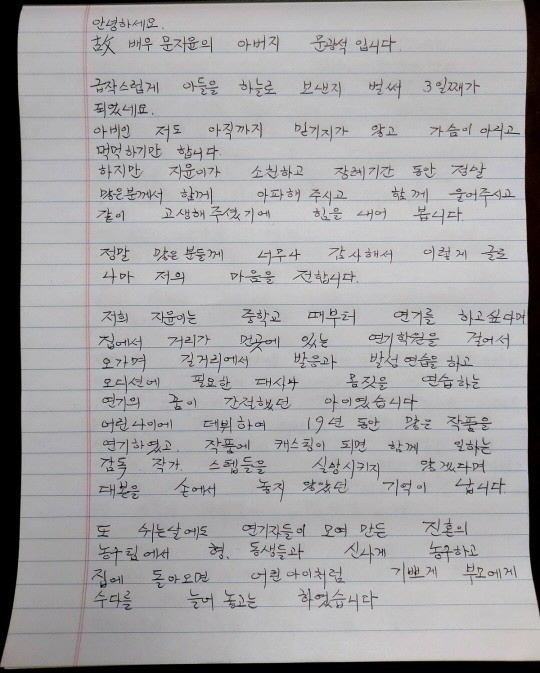 안녕하세요.
故 배우 문자윤의 아버지 문광석 입니다.
급작스럽게 아들을 하늘로 보낸지 벌써 3일째가
되었네요.
아비인 저도 아직까지 믿기지가 않고 가슴이 아리고
먹먹하기만 합니다.
하지만 자윤이가 소천하고 장례기간 동안 정말
많은분께서 함께 아파해 주시고 함께 울어주시고
같이 고생해 주셨기에 힘을 내어 봅니다
정말 많은 분들께 너무나 감사해서 이렇게 글로
나마 저의 마음을 전합니다.
저희 자윤이는 중학교 때부터 연기를 하고싶다며
집에서 거리가 먼곳에 있는 연기학원을 걸어서
오가며 길거리에서 발음과 발성 연습을 하고
오디션에 필요한 대사나 몸짓을 연습하는
연기의 꿈이 간절했던 아이였습니다
어린나이에 데뷔하여 19년 동안 많은 작품을
연기하였고. 작품에 캐스팅이 되면 함께 일하는
감독 작가 스텝들을 실망시키지 않겠다며
대본을 손에서 놓지 않았던 기억이 납니다.
또 쉬는날에도 연기자들이 모여 만든 진혼의
농구팀에서 형, 동생들과 신나게 농구하고
집에 돌아오면 어린아이처럼 기쁘게 부모에게
수다를 늘어 놓고는 하였습니다